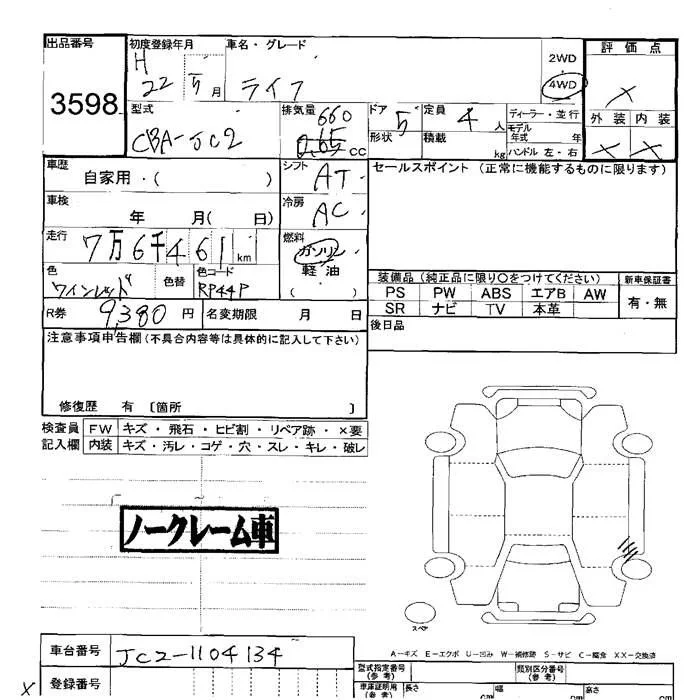 出品番号
3598
初度登録年月
H
22 5 月
車名・グレード
ライフ
2WD
・
4WD
評価点
×
外装 内装
× ×
型式
CBA-JC2
排気量
660
cc
ドア
5
形状
定員
4 人
積載
kg
ディーラー・並行
モデル年式 年
ハンドル 左・右
車歴
自家用・( )
シフト
AT
セールスポイント (正常に機能するものに限ります)
車検
年 月( 日)
冷房
AC
走行
7万6千461 km
燃料
ガソリン・
軽油
( )
色
ワインレッド
色替
色コード
RP44P
装備品 (純正品に限り〇をつけてください)
新車保証書
PS PW ABS エアB AW
有・無
SR ナビ TV 本革
R券 9,380 円
名変期限 月 日
後日品
注意事項申告欄(不具合内容等は具体的に記入して下さい)
修復歴 有 〔箇所 〕
検査員 FW キズ・飛石・ヒビ割・リペア跡・×要
記入欄 内装 キズ・汚レ・コゲ・穴・スレ・キレ・破レ
ノークレーム車
スペア
A-キズ E-エクボ U-凹み W-補修跡 S-サビ C-腐食 XX-交換済
車台番号 JC2-1104134
型式指定番号
(参考)
類別区分番号
(参考)
× 登録番号
車庫証明用
(参考)
長さ cm
幅 cm
高さ cm